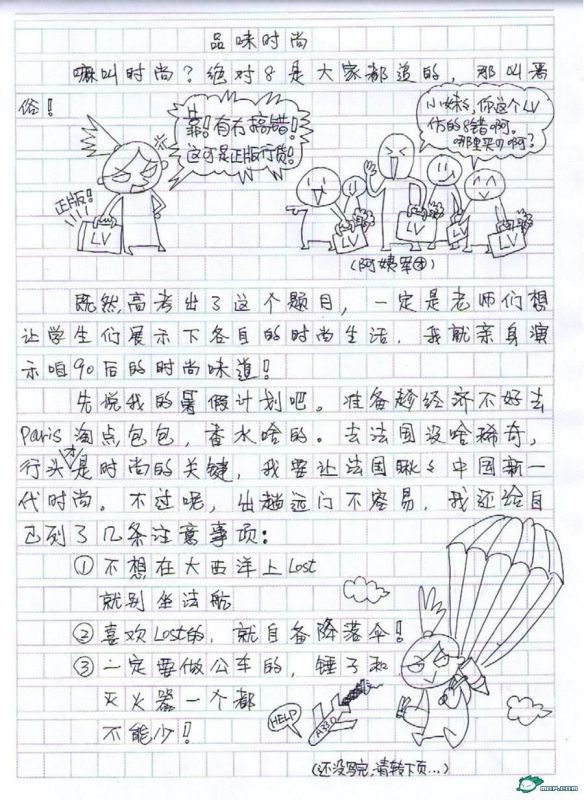 品味时尚
嘛叫时尚？绝对8是大家都追的，那叫恶
俗！
靠！有冇搞错！
这可是正版行货！
正版！
LV
小妹妹，你这个LV
仿的8错啊。
哪里买の啊？
LV
LV
LV
LV
(阿姨军团)
既然高考出了这个题目，一定是老师们想
让学生们展示下各自的时尚生活，我就亲身演
示咱90后的时尚味道！
先说我的暑假计划吧。准备趁经济不好去
Paris淘点包包，香水啥的。去法国没啥稀奇，
行头才是时尚的关键，我要让法国瞅瞅中国新一
代时尚。不过呢，出趟远门不容易，我还给自
己列了几条注意事项：
①不想在大西洋上Lost
就别坐法航
②喜欢Lost的，就自备降落伞！
③一定要做公车的，锤子和
灭火器一个都
不能少！
HELP
A330
(还没写完，请转下页...)
mop.com